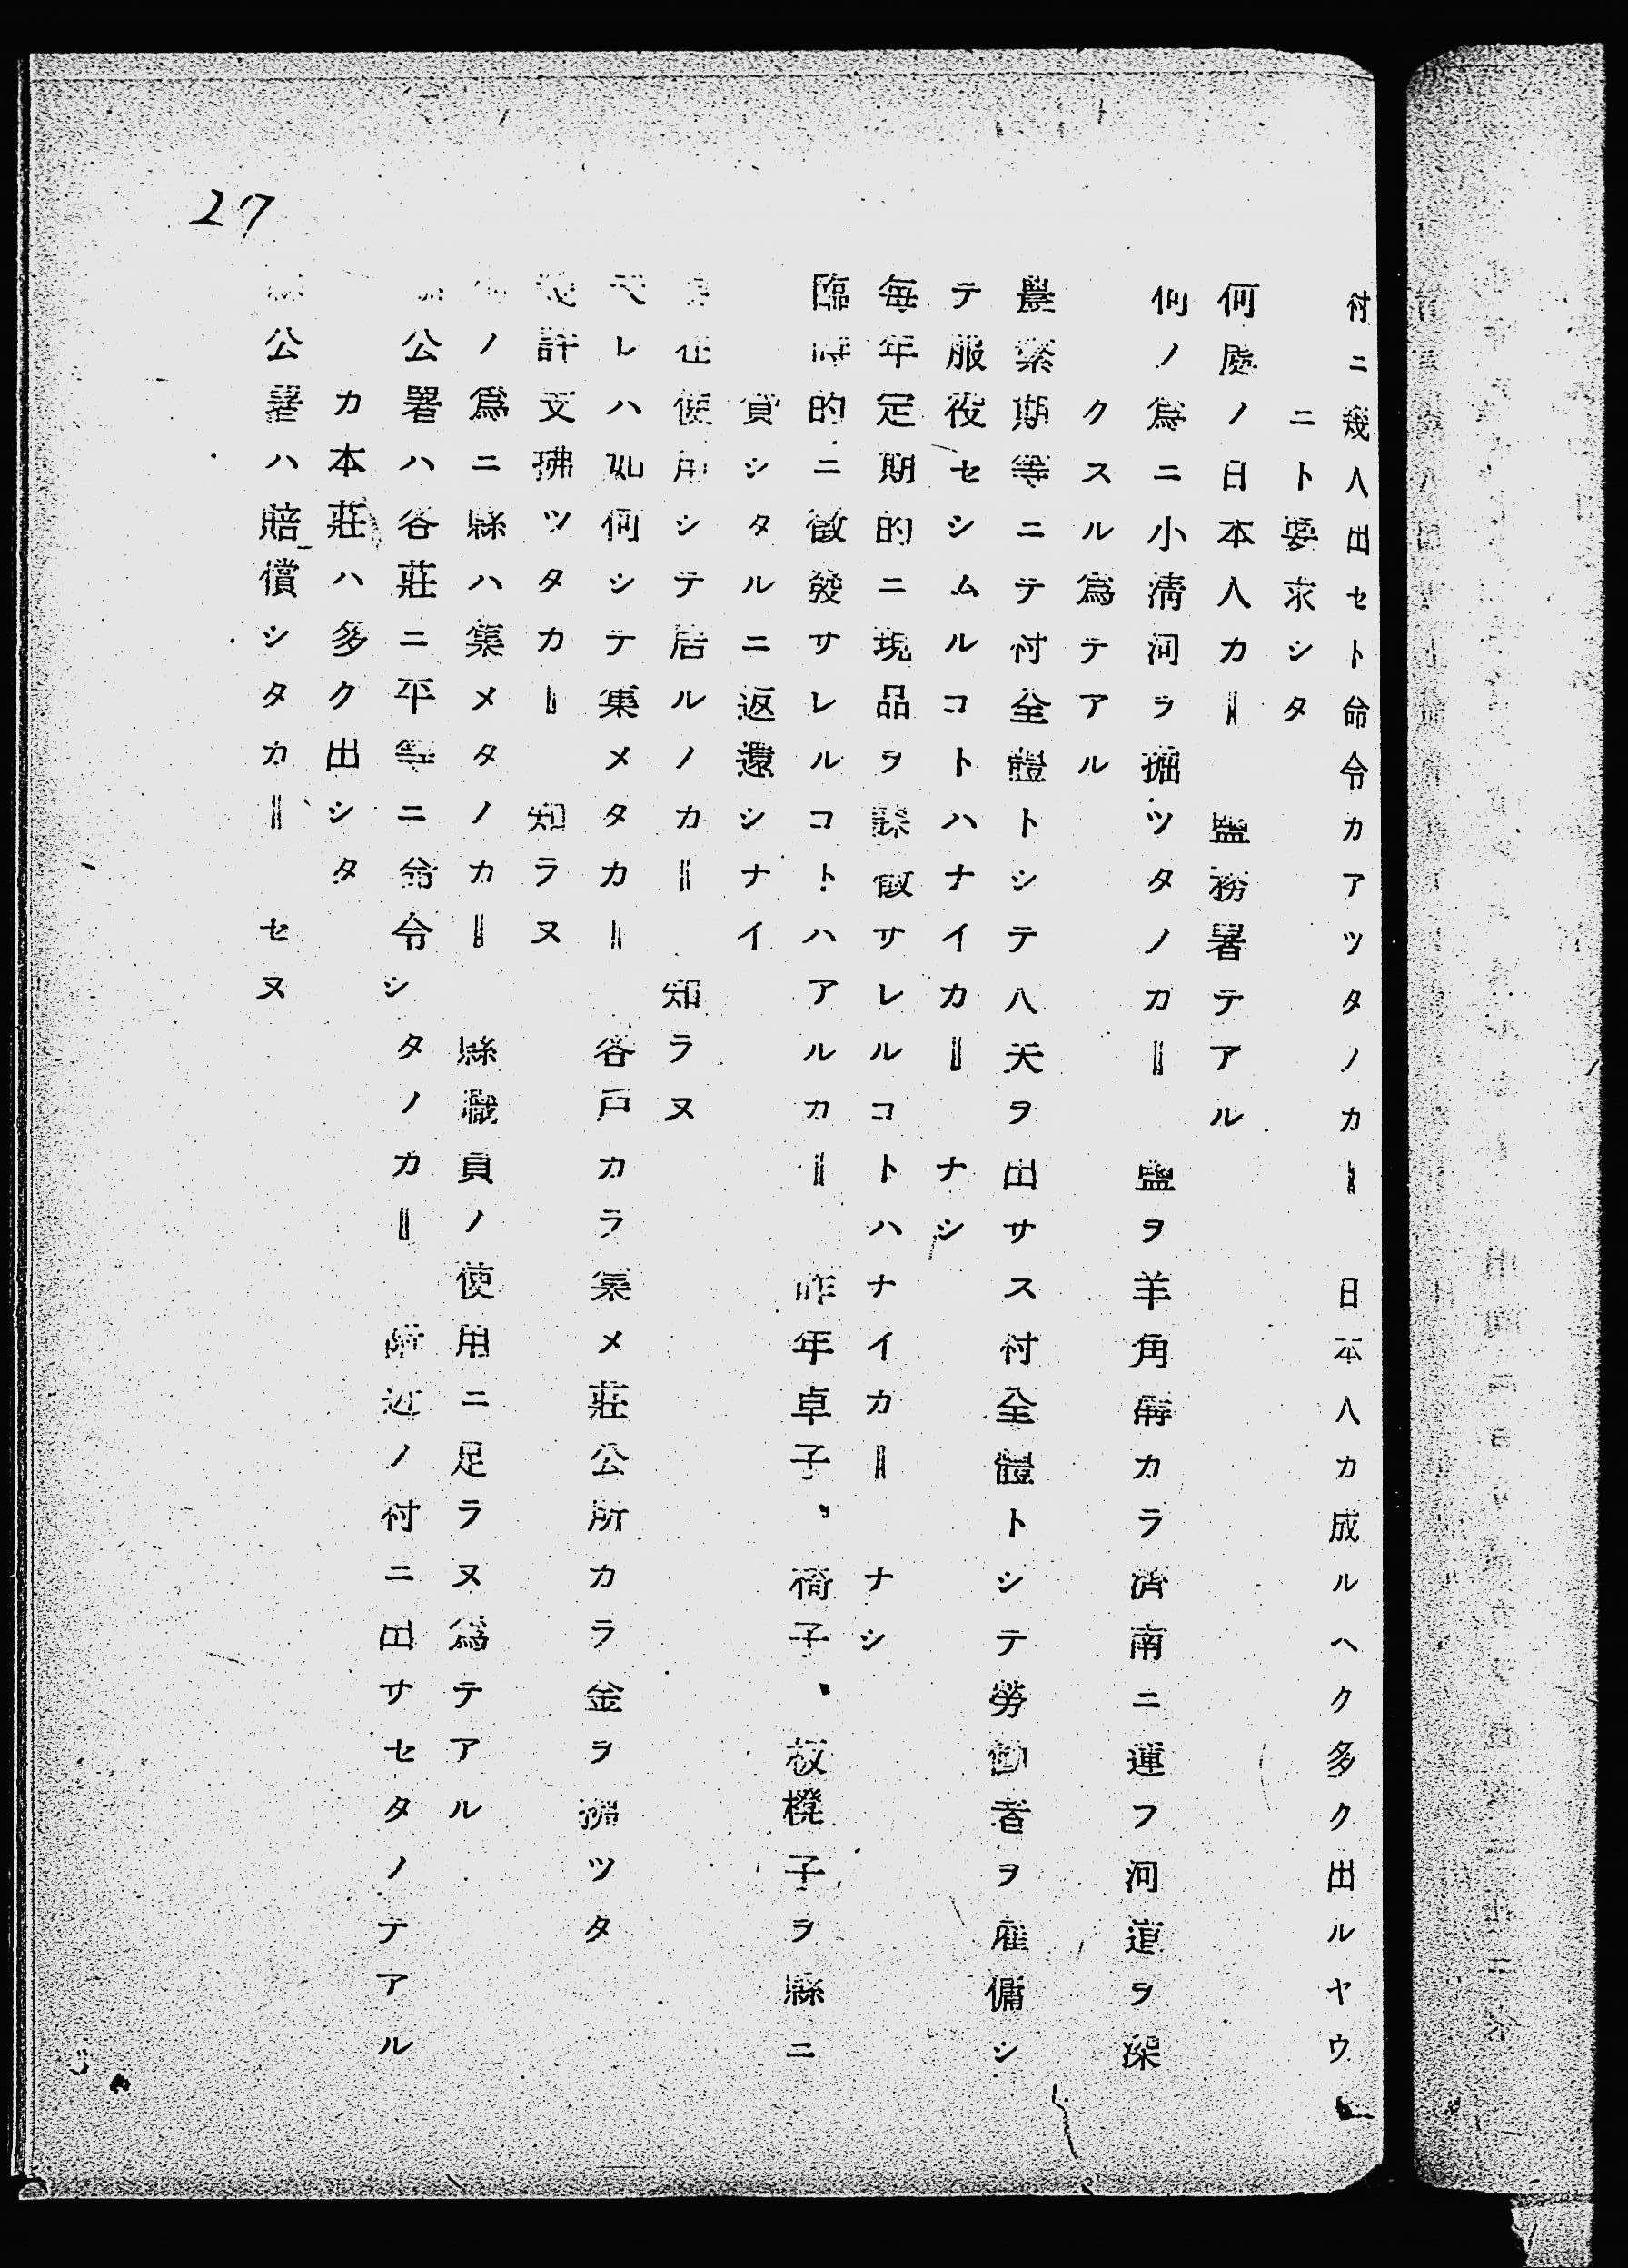 27
村ニ幾人出セト命令カアツタノカ＝　日本人カ成ルヘク多ク出ルヤウ
ニト要求シタ
何處ノ日本人カ＝　鹽務署テアル
何ノ爲ニ小淸河ヲ掘ツタノカ＝　鹽ヲ羊角溝カラ濟南ニ運フ河道ヲ深
クスル爲テアル
農繁期等ニテ村全體トシテ八天ヲ出サス村全體トシテ勞働者ヲ雇傭シ
テ服役セシムルコトハナイカ＝　ナシ
每年定期的ニ現品ヲ課徵サレルコトハナイカ＝　ナシ
臨時的ニ徵發サレルコトハアルカ＝　昨年卓子、椅子、板櫈子ヲ縣ニ
貸シタルニ返還シナイ
在使用シテ居ルノカ＝　知ラヌ
レハ如何シテ集メタカ＝　各戶カラ集メ莊公所カラ金ヲ拂ツタ
許文拂ツタカ＝　知ラヌ
ノ爲ニ縣ハ集メタノカ＝　縣職員ノ使用ニ足ラヌ爲テアル
公署ハ各莊ニ平等ニ命令シタノカ＝　附近ノ村ニ出サセタノテアル
カ本莊ハ多ク出シタ
公署ハ賠償シタカ＝　セヌ